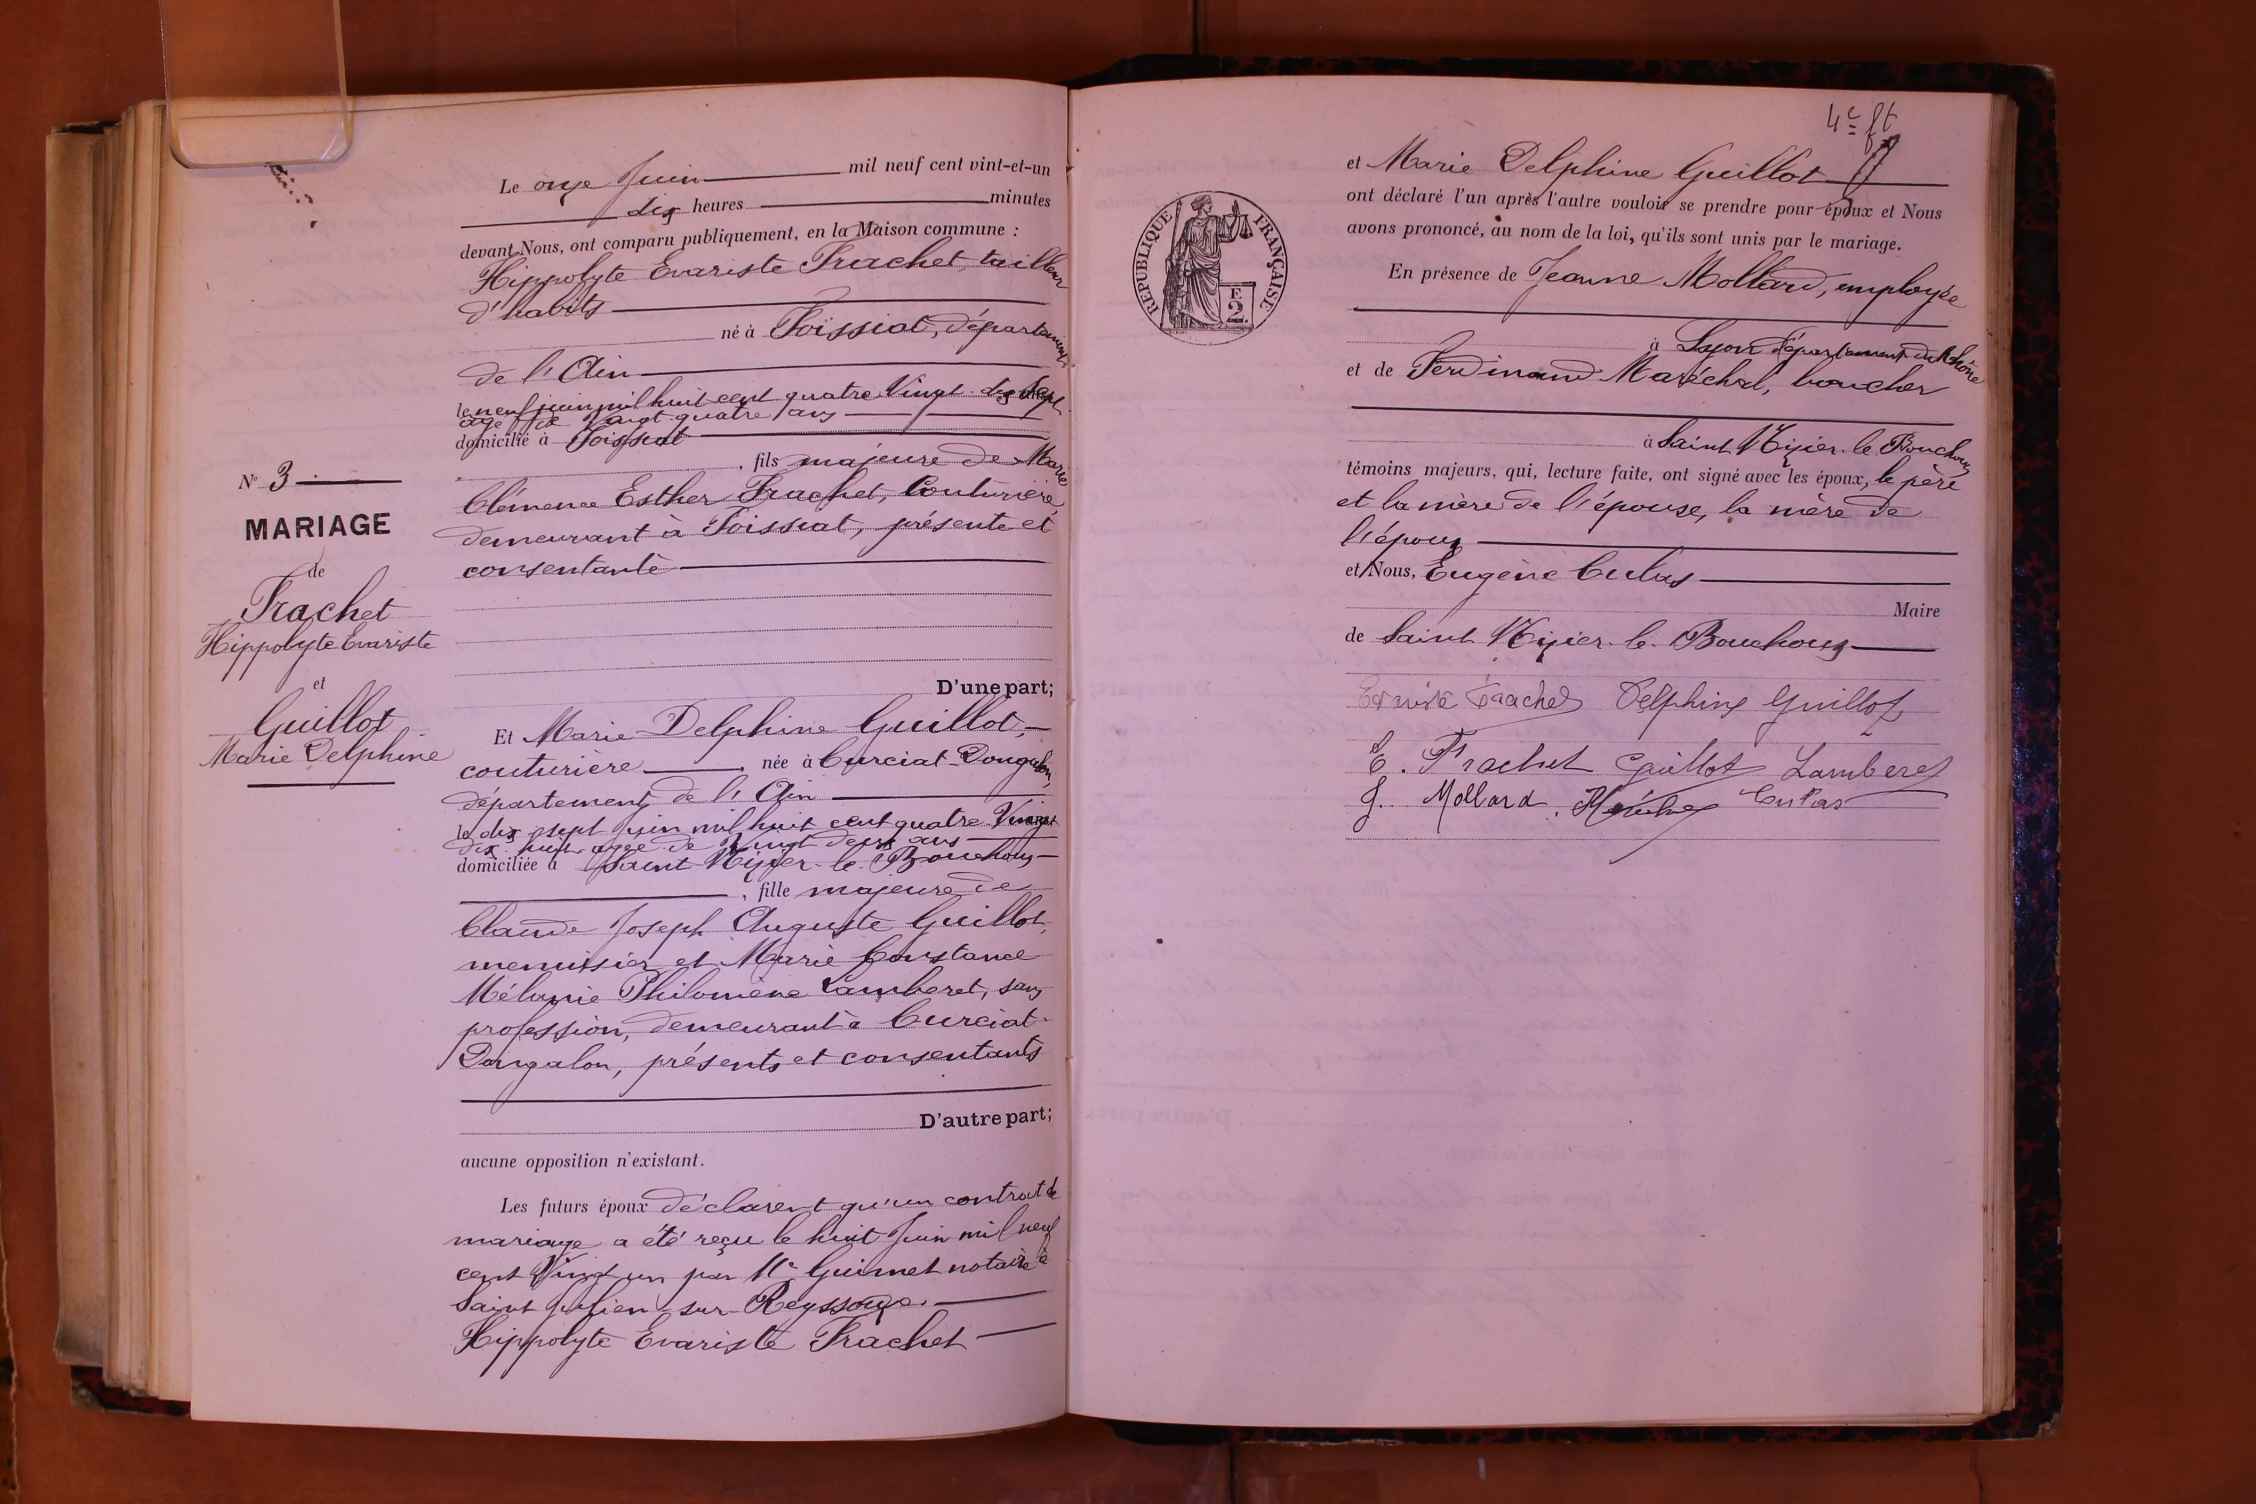 Le onze Juin mil neuf cent vint-et-un
dix heures minutes
devant Nous, ont comparu publiquement, en la Maison commune :
Hippolyte Evariste Frachet, tailleur
d'habits
né à Foissiat, département
de l'Ain
le neuf juin mil huit cent quatre Vingt dix sept
âgé de Vingt quatre ans
domicilié à Foissiat
, fils majeure de Marie
Clémence Esther Frachet, Couturière
demeurant à Foissiat, présente et
consentante
N° 3
MARIAGE
de
Frachet
Hippolyte Evariste
et
Guillot
Marie Delphine
D'une part;
Et Marie Delphine Guillot,
couturière, née à Curciat-Dongalon,
département de l'Ain
le dix sept juin mil huit cent quatre Vingt
dix huit âgée de Vingt deux ans
domiciliée à Saint Nizier-le-Bouchoux
, fille majeure de
Claude Joseph Auguste Guillot,
menuisier et Marie Constance
Mélanie Philomène Lamberet, sans
profession, demeurant à Curciat-
Dongalon, présents et consentants
D'autre part;
aucune opposition n'existant.
Les futurs époux déclarent qu'un contrat de
mariage a été reçu le huit Juin mil neuf
cent Vingt un par Me Guimet notaire à
Saint Julien sur Reyssouze.
Hippolyte Evariste Frachet
4e ft
RÉPUBLIQUE FRANÇAISE
F.
2
et Marie Delphine Guillot
ont déclaré l'un après l'autre vouloir se prendre pour époux et Nous
avons prononcé, au nom de la loi, qu'ils sont unis par le mariage.
En présence de Jeanne Mollard, employée
à Lyon département du Rhône
et de Ferdinand Maréchal, boucher
à Saint Nizier-le-Bouchoux
témoins majeurs, qui, lecture faite, ont signé avec les époux, le père
et la mère de l'épouse, la mère de
l'époux
et Nous, Eugène Culas
Maire
de Saint Nizier-le-Bouchoux
Evariste Frachet Delphine Guillot
E. Frachet Guillot Lamberet
J. Mollard. Culas